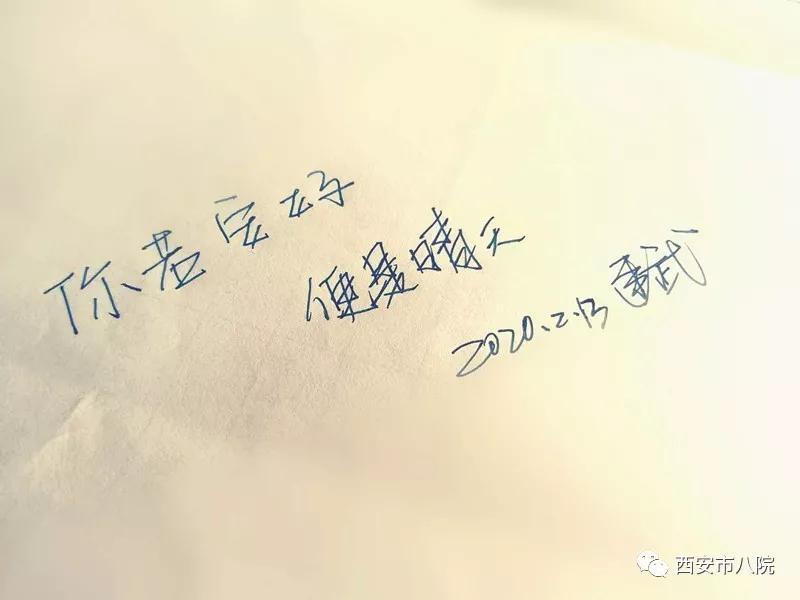 你若安好
便是晴天
2020.2.13
西安市八院